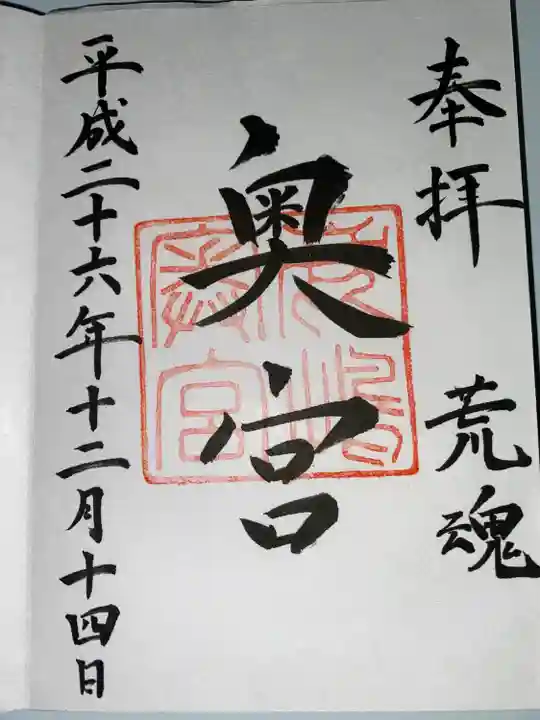 奉拝　荒魂
奥宮
平成二十六年十二月十四日